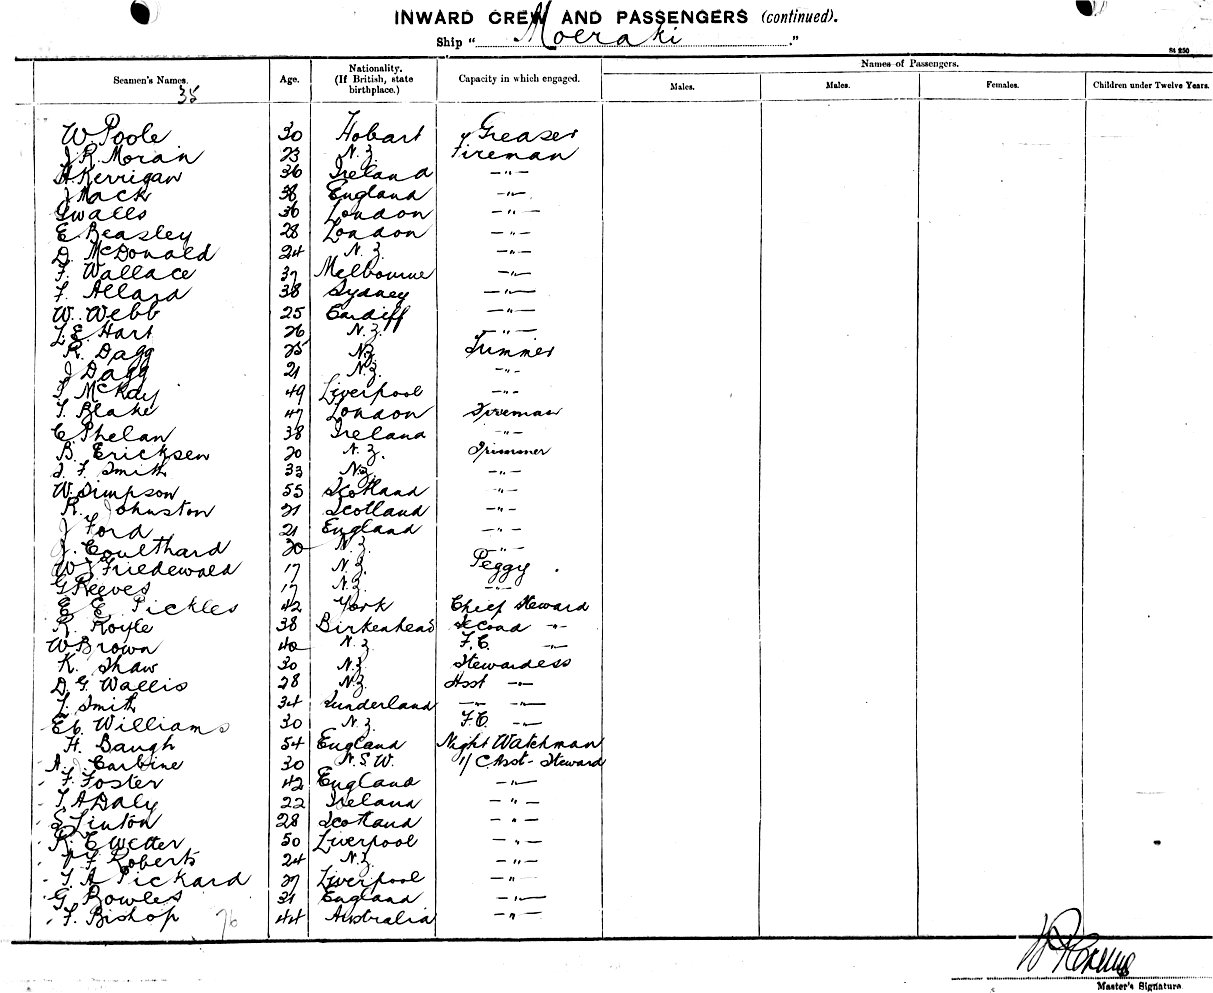 INWARD CREW AND PASSENGERS (continued).
Ship "Moeraki."
St 250
Seamen's Names. Age. Nationality. (If British, state birthplace.) Capacity in which engaged. Names of Passengers.
Males. Males. Females. Children under Twelve Years.
35
W Poole 30 Hobart Greaser
J R Moran 23 N.Z. Fireman
H Kerrigan 36 Ireland -"-
J Mack 38 England -"-
Walls 36 London -"-
E Beasley 28 London -"-
D. McDonald 24 N.Z. -"-
F. Wallace 37 Melbourne -"-
F. Allard 38 Sydney -"-
W. Webb 25 Cardiff -"-
E. Hart 26 N.Z. -"-
R. Dagg 25 N.Z. Trimmer
J Dagg 21 N.Z. -"-
McKay 49 Liverpool -"-
T. Blake 47 London Fireman
C. Phelan 38 Ireland -"-
B. Ericksen 20 N.Z. Trimmer
F. Smith 33 N.Z. -"-
W. Simpson 55 Scotland -"-
R. Johnston 21 Scotland -"-
J Ford 21 England -"-
J. Coulthard 20 N.Z. -"-
W J Friedewald 17 N.Z. Peggy
G Reeves 17 N.Z. -"-
E E Pickles 42 York Chief Steward
R. Royle 38 Birkenhead Second -"-
W Brown 40 N.Z. F.C. -"-
K. Shaw 30 N.Z. Stewardess
D. G. Wallis 28 N.Z. Asst -"-
Smith 34 Sunderland -"- -"-
Williams 30 N.Z. F.C. -"-
H. Baugh 54 England Night Watchman
A. J Carbine 30 N.S.W. 1/C Asst- Steward
F. Foster 42 England -"-
T. A Daly 22 Ireland -"-
S Linton 28 Scotland -"-
R. E Wetter 50 Liverpool -"-
F Roberts 24 N.Z. -"-
T. A Pickard 27 Liverpool -"-
G. Bowles 31 England -"-
F. Bishop 76 44 Australia -"-
Master's Signature